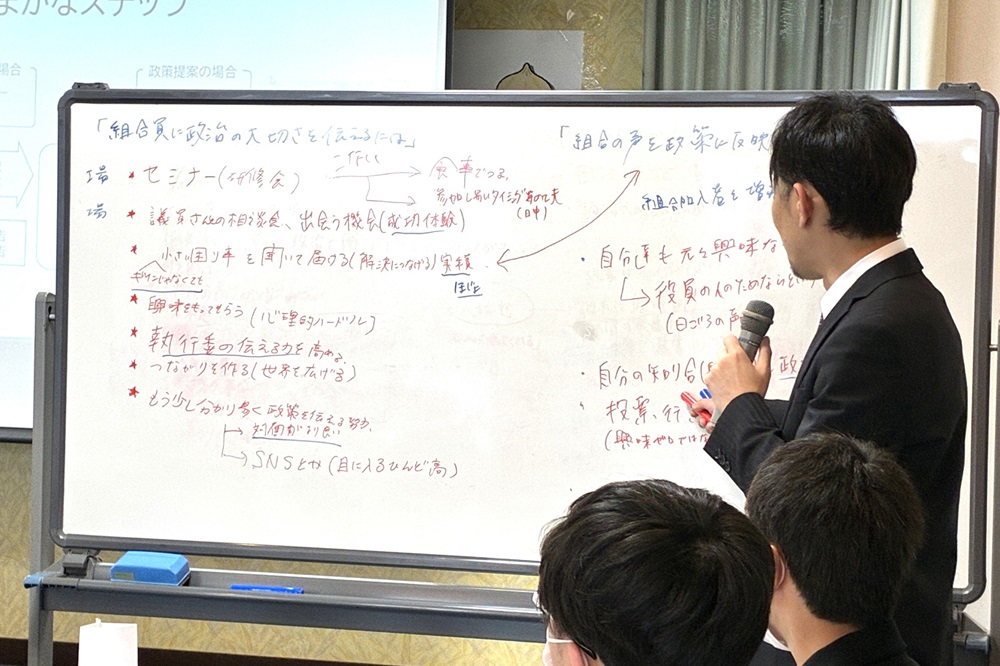 まかなステップ
場合
政策提案の場合
「組合員に政治の大切さを伝えるには」
場 * セミナー(研修会)
食事でつる。
参加しあいタイミング
(日中)
場 * 議員さんの相談会、出会う機会(成功体験)
* 小さい困り事を聞いて届ける(解決につなげる)実績
ギインじゃなくても
* 興味をもってもらう(心理的ハードル)
* 執行委の伝える力を高める。
* つながりを作る(世界を広げる)
* もう少し分かり易く政策を伝える努力。
対面がより良い
SNSとか(目に入るひんど高)
「組合の声を政策に反映
組合加入者を増
・自分達も元々興味な
役員の人のためならと
(日ごろの声
・自分の知り合
政
・投票、行
(興味